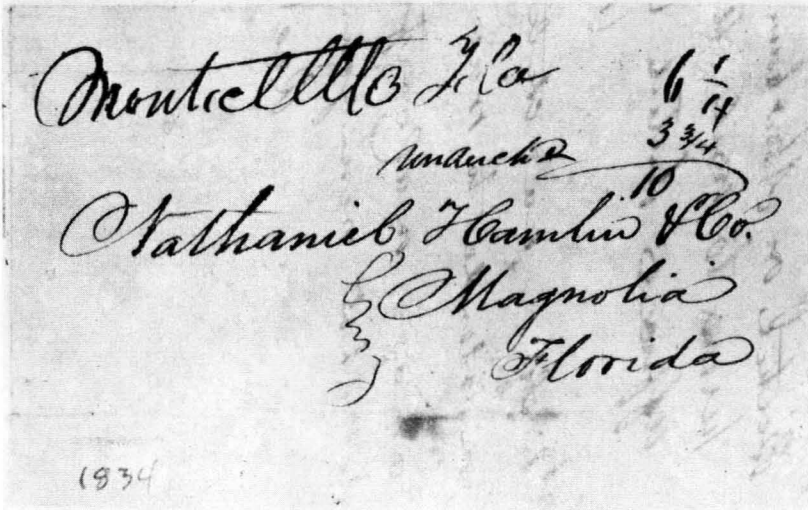 Monticello Fla 6 1/4
3 3/4
10
Nathaniel Hamlin & Co.
Magnolia
Florida
1834